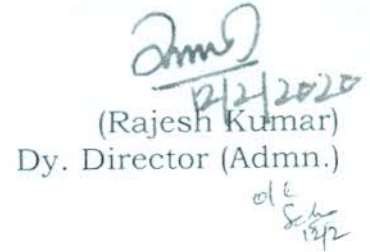 12/2/2020
(Rajesh Kumar)
Dy. Director (Admn.)
12/2